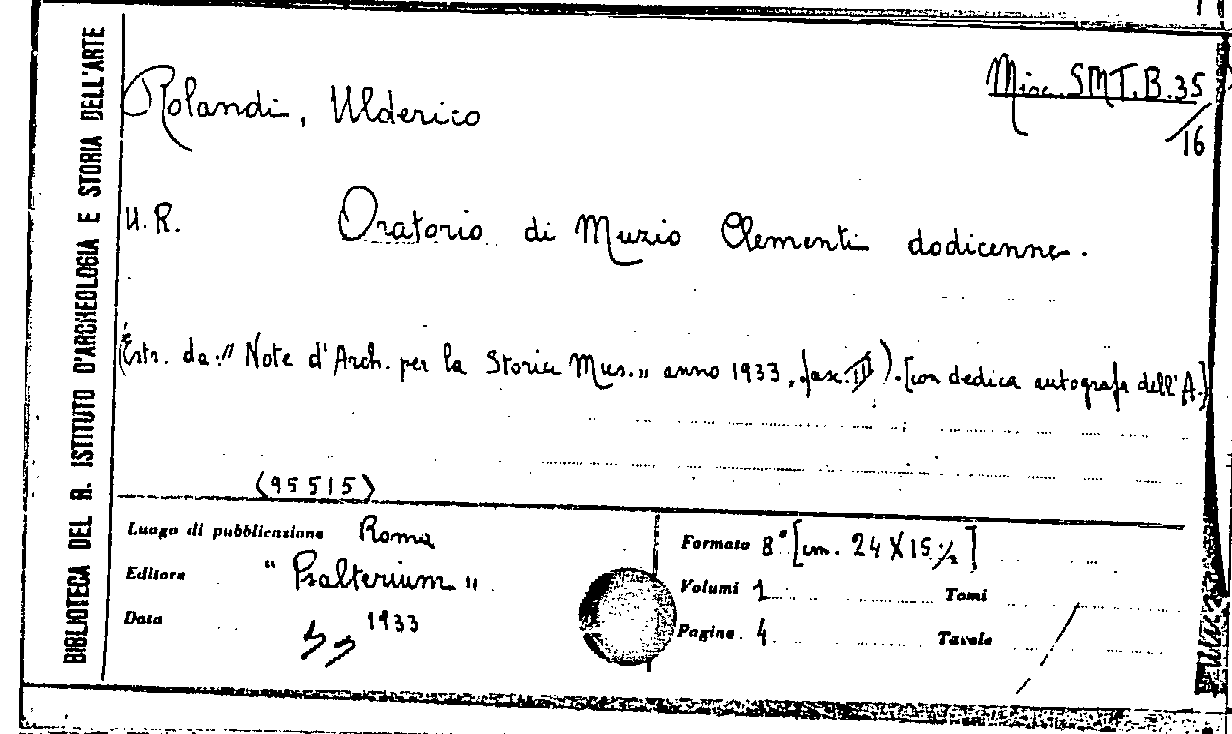 BIBLIOTECA DEL R. ISTITUTO D'ARCHEOLOGIA E STORIA DELL'ARTE
Rolandi, Ulderico
Misc. SMT. B. 35
/16
U. R. Oratorio di Muzio Clementi dodicenne.
(Estr. da: " Note d'Arch. per la Storia Mus. " anno 1933, fasc. III ). [con dedica autografa dell'A.]
(95515)
Luogo di pubblicazione Roma
Editore " Psalterium "
Data 1933
Formato 8° [cm. 24 X 15 ½]
Volumi 1 Tomi
Pagine 4 Tavole